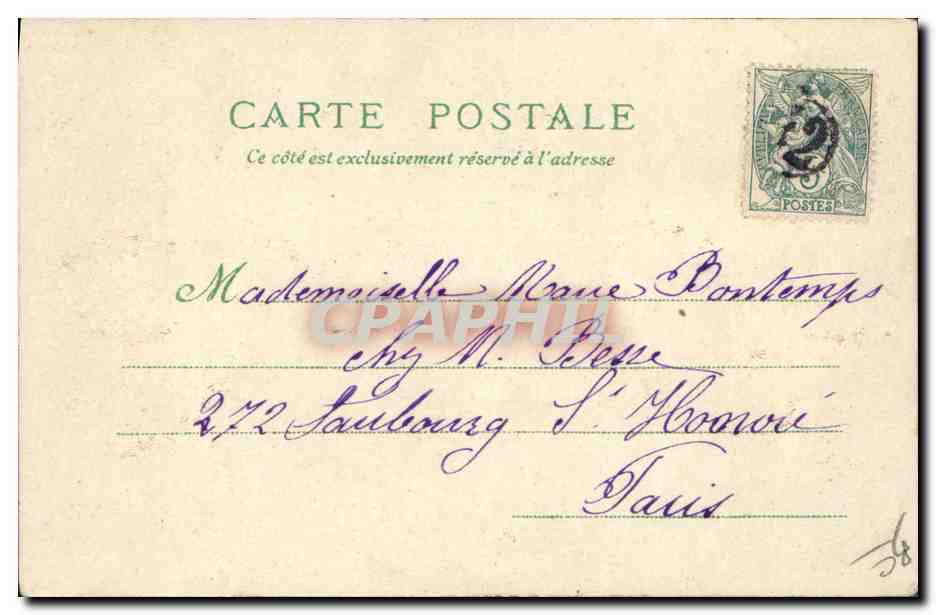 CARTE POSTALE
Ce côté est exclusivement réservé à l'adresse
2
5
POSTES
Mademoiselle Marie Bontemps
CPAPHIL
chez M. Besse
272 Faubourg St Honoré
Paris